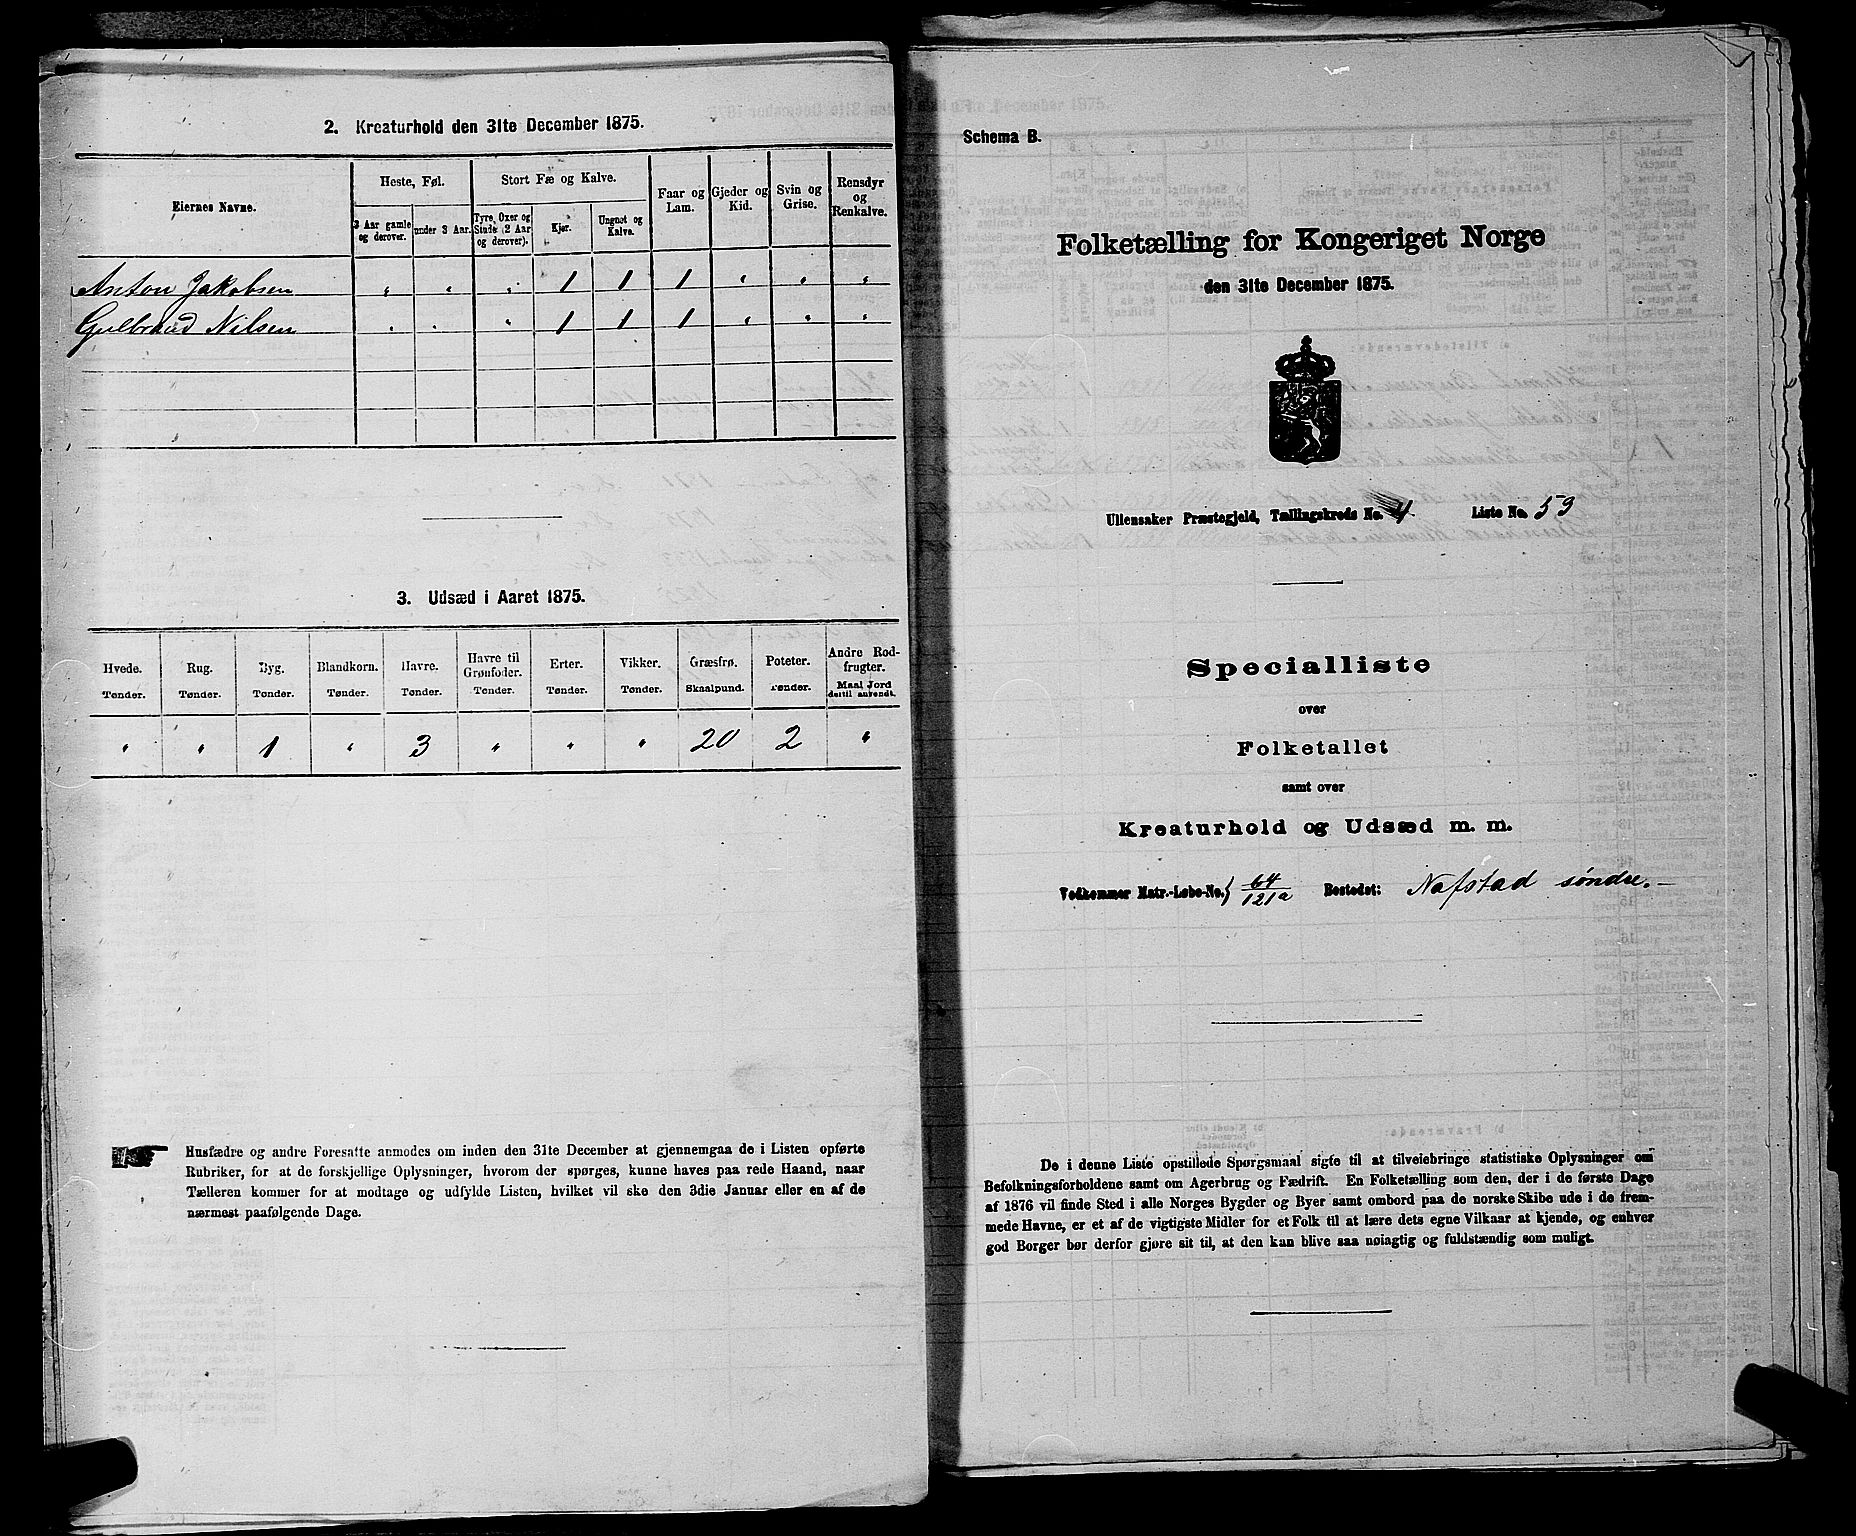 2. Kreaturhold den 31te December 1875.
Eiernes Navne.
Heste, Føl.
Stort Fæ og Kalve.
Faar og Lam.
Gjeder og Kid.
Svin og Grise.
Rensdyr og Renkalve.
3 Aar gamle og derover.
under 3 Aar.
Tyre, Oxer og Stude (2 Aar og derover).
Kjør.
Ungnøt og Kalve.
Anton Jakobsen " " " 1 1 1 " " "
Gulbrand Nilsen " " " 1 1 1 " " "
3. Udsæd i Aaret 1875.
Hvede. Rug. Byg. Blandkorn. Havre. Havre til Grønfoder. Erter. Vikker. Græsfrø. Poteter. Andre Rodfrugter.
Tønder. Tønder. Tønder. Tønder. Tønder. Tønder. Tønder. Tønder. Skaalpund. Tønder. Maal Jord dertil anvendt.
" " 1 " 3 " " " 20 2 "
Husfædre og andre Foresatte anmodes om inden den 31te December at gjennemgaa de i Listen opførte
Rubriker, for at de forskjellige Oplysninger, hvorom der spørges, kunne haves paa rede Haand, naar
Tælleren kommer for at modtage og udfylde Listen, hvilket vil ske den 3die Januar eller en af de
nærmest paafølgende Dage.
Schema B.
Folketælling for Kongeriget Norge
den 31te December 1875.
Ullensaker Præstegjeld, Tællingskreds No. 4 Liste No. 53
Specialliste
over
Folketallet
samt over
Kreaturhold og Udsæd m. m.
Vedkommer Matr.-Løbe-No. 64/121a Bostedet: Nafstad søndre.
De i denne Liste opstillede Spørgsmaal sigte til at tilveiebringe statistiske Oplysninger om
Befolkningsforholdene samt om Agerbrug og Fædrift. En Folketælling som den, der i de første Dage
af 1876 vil finde Sted i alle Norges Bygder og Byer samt ombord paa de norske Skibe ude i de frem-
mede Havne, er et af de vigtigste Midler for et Folk til at lære dets egne Vilkaar at kjende, og enhver
god Borger bør derfor gjøre sit til, at den kan blive saa nøiagtig og fuldstændig som muligt.